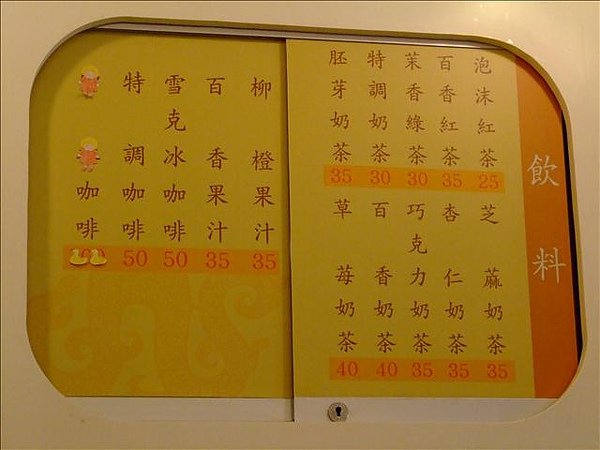 飲料
泡沫紅茶 25
百香紅茶 35
茉香綠茶 30
特調奶茶 30
胚芽奶茶 35
芝蔴奶茶 35
杏仁奶茶 35
巧克力奶茶 35
百香奶茶 40
草莓奶茶 40
柳橙果汁 35
百香果汁 35
雪克冰咖啡 50
特調咖啡 50
咖啡